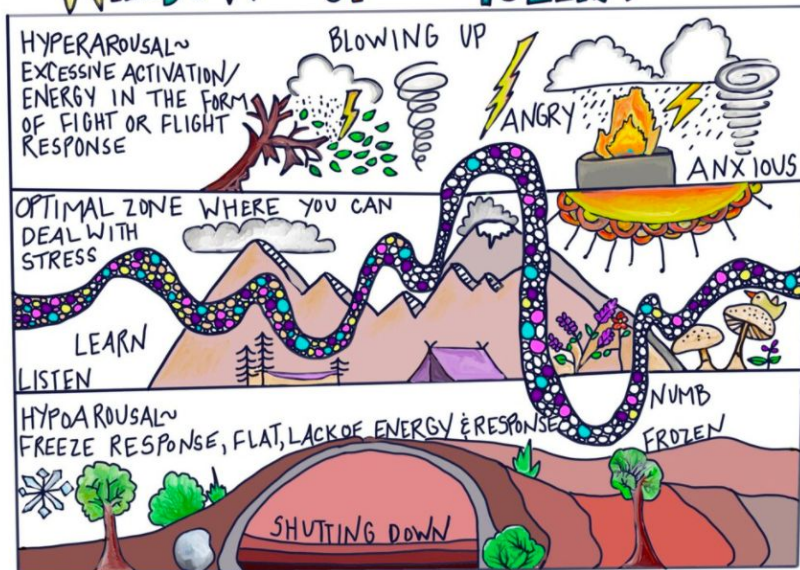 HYPERAROUSAL~
EXCESSIVE ACTIVATION/
ENERGY IN THE FORM
OF FIGHT OR FLIGHT
RESPONSE
BLOWING UP
ANGRY
ANXIOUS
OPTIMAL ZONE WHERE YOU CAN
DEAL WITH
STRESS
LEARN
LISTEN
HYPOAROUSAL~
FREEZE RESPONSE, FLAT, LACK OF ENERGY & RESPONSE
NUMB
FROZEN
SHUTTING DOWN